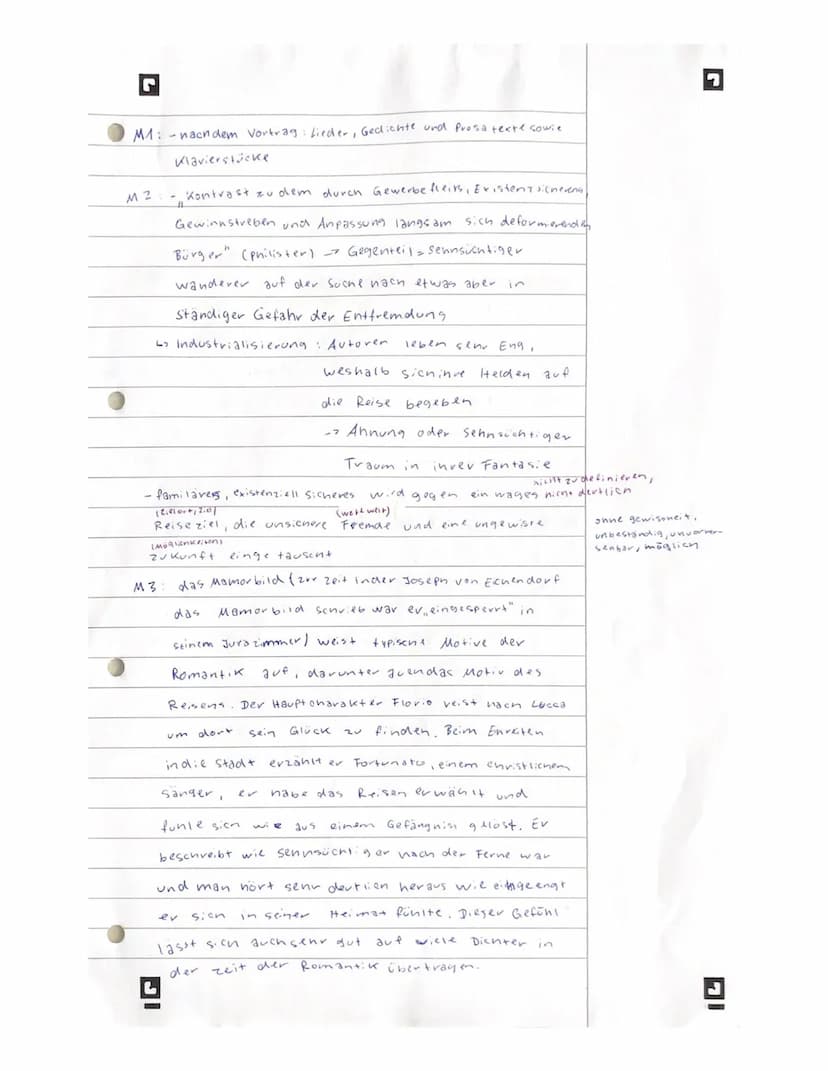 M1: - nach dem Vortrag: Lieder, Gedichte und Prosatexte sowie
Klavierstücke
M2: - „Kontrast zu dem durch Gewerbefleiß, Existenzsicherung,
Gewinnstreben und Anpassung langsam sich deformierenden
Bürger" (Philister) → Gegenteil = Sehnsüchtiger
wanderer auf der Suche nach etwas aber in
ständiger Gefahr der Entfremdung
↳ Industrialisierung: Autoren leben sehr Eng,
weshalb sich ihre Helden auf
die Reise begeben
→ Ahnung oder Sehnsüchtiger
Traum in ihrer Fantasie
nicht zu definieren,
- familiäres, existenziell sicheres wird gegen ein wages nicht deutlich
(Zielort, Ziel) (weit weit)
Reiseziel, die unsichere Fremde und eine ungewisse
ohne gewissheit,
unbeständig, unvorher-
sehbar, möglich
(Möglichkeiten)
zukunft eingetauscht
M3: das Mamorbild (zur Zeit in der Joseph von Eichendorf
das Mamorbild schrieb war er „eingesperrt" in
seinem Jurazimmer) weist typische Motive der
Romantik auf, darunter auch das Motiv des
Reisens. Der Hauptcharakter Florio reist nach Lucca
um dort sein Glück zu finden. Beim Einreiten
in die Stadt erzählt er Fortunato, einem christlichem
Sänger, er habe das Reisen erwählt und
fühle sich wie aus einem Gefängnis gelöst. Er
beschreibt wie sehnsüchtig er nach der Ferne war
und man hört sehr deutlich heraus wie eingeengt
er sich in seiner Heimat fühlte. Dieser Gefühl
lässt sich auch sehr gut auf viele Dichter in
der zeit der Romantik übertragen.